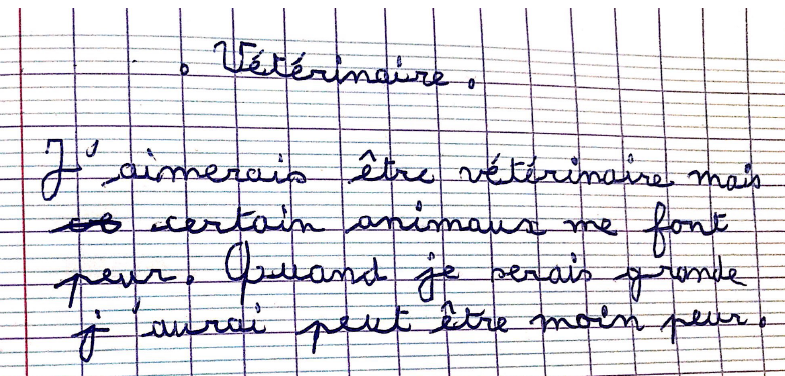 . Vétérinaire.
J'aimerais être vétérinaire mais
certain animaux me font
peur. Quand je serais grande
j'aurai peut être moin peur.